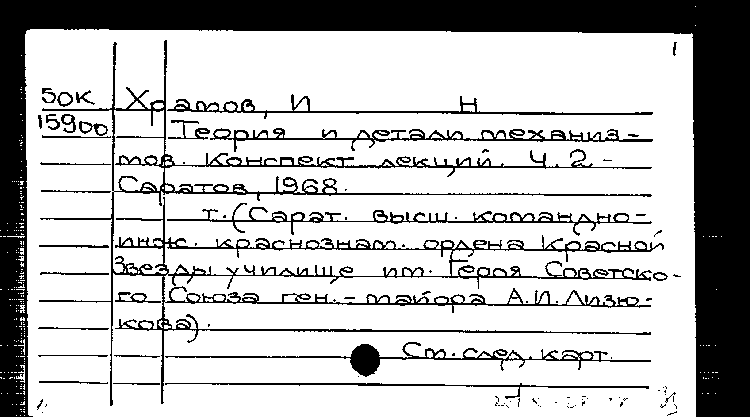 1
50К Храмов, И Н
15900 Теория и детали механиз-
мов. Конспект лекций. Ч. 2-
Саратов, 1968.
т. (Сарат. высш. командно-
инж. краснознам. ордена Красной
Звезды училище им. Героя Советско-
го Союза ген.-майора А.И. Лизю-
кова).
См. след. карт.